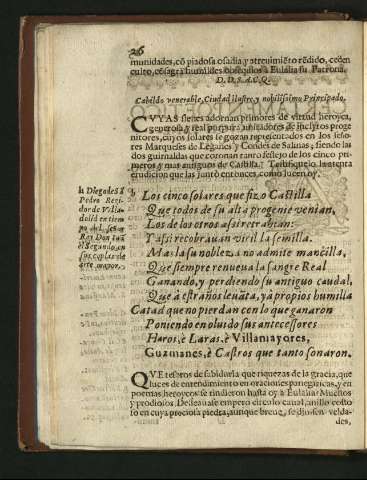 26
munidades, cõ piadosa osadia, y atreuimiẽto rẽdido, ceden
culto, cõsagrã humildes obsequios à Eulalia su Patrona.
D. D. S. A. C. Q.
Cabildo venerable, Ciudad ilustre, y nobilissimo Principado.
CVYAS sienes adornan primores de virtud heroyca,
generosa, y real purpura, imitadores de inclytos proge
nitores, cuyos solares se gozan representados en los seño-
res Marqueses de Leganes y Condes de Salinas; siendo las
dos guirnaldas que coronan tanto festejo de los cinco pri-
meros y mas antiguos de Castilla: Testifiquelo la atenta
erudicion que las juntò entonces, como lucen oy.
h Diego de S.
Pedro Regi-
dor de Valla-
dolid en tiem
po del señor
Rey Don Iuã
el Segundo, en
sus coplas de
arte mayor.
h Los cinco solares que fizo Castilla
Que todos de su alta progenie venian,
Los de los otros assi retrahian:
Y assi recobrauan viril la semilla.
Mas la su nobleza no admite manzilla,
Que siempre renueua la sangre Real
Ganando, y perdiendo su antiguo caudal,
Que à estraños leuãta, y à propios humilla
Catad que no pierdan con lo que ganaron
Poniendo en oluido sus antecessores
Haros, è Laras, è Villamayores,
Guzmanes, è Castros que tanto sonaron.
QVE tesoros de sabiduria que riquezas de la gracia, que
luces de entendimiento en oraciones panegiricas, y en
poemas heroycos se rindieron hasta oy à Eulalia: Muchos
y prodiosos. Deseauase empero circulo cabal, anillo costo
so en cuya preciosa piedra, aunque breue, se diuisen velda-
des,